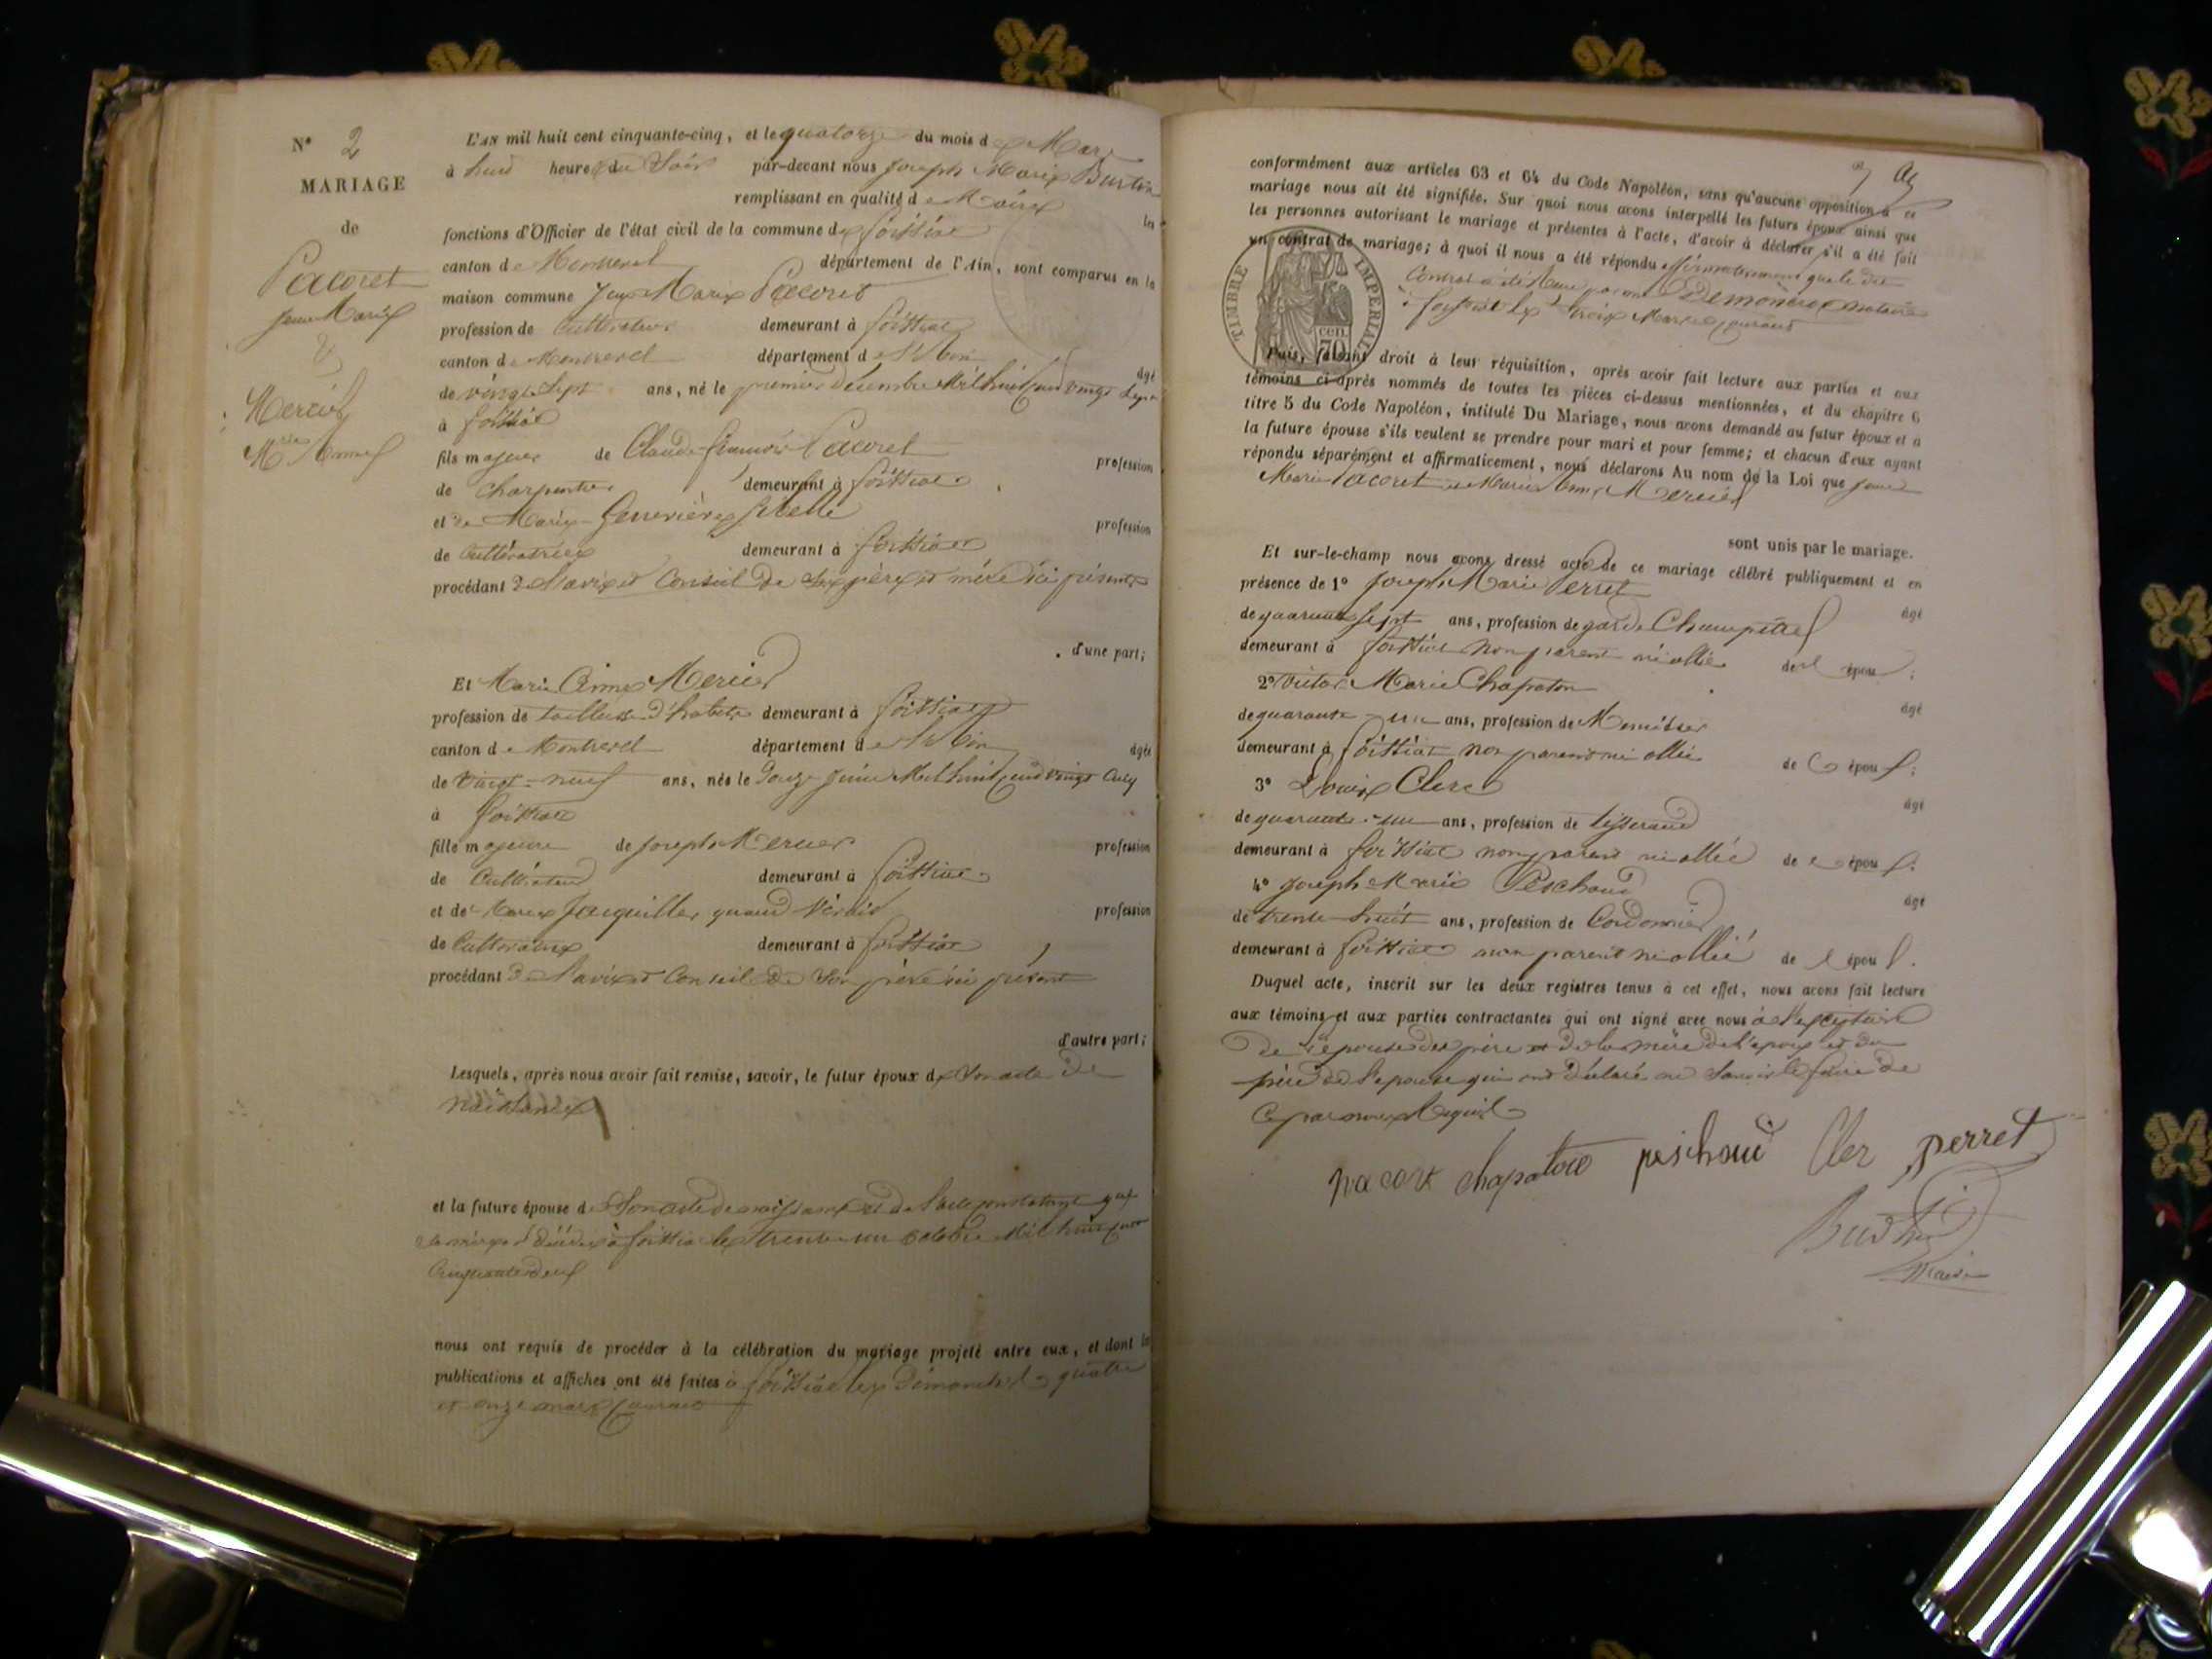 N° 2
MARIAGE
de
Pacoret
Jean Marie
&
Mercier
Mie Anne
L'AN mil huit cent cinquante-cinq, et le quatorze du mois de Mars
à huit heures du Soir par-devant nous Joseph Marie Burtin
remplissant en qualité de Maire les
fonctions d'Officier de l'état civil de la commune de foissiat
canton de Montrevel département de l'Ain, sont comparus en la
maison commune Jean Marie Pacoret
profession de Cultivateur demeurant à foissiat
canton de Montrevel département de l'Ain âgé
de vingt Sept ans, né le premier Décembre Mil huit cent vingt Sept
à foissiat
fils majeur de Claude françois Pacoret profession
de Charpentier demeurant à foissiat
et de Marie Genevière Sibelle profession
de Cultivatrice demeurant à foissiat
procédant de l'avis et Conseil de Ses père et mère ici présents
d'une part;
Et Marie Anne Mercier
profession de tailleuse d'habits demeurant à foissiat
canton de Montrevel département de l'Ain âgée
de vingt-neuf ans, née le Douze Juin Mil huit cent vingt Cinq
à foissiat
fille majeure de Joseph Mercier profession
de Cultivateur demeurant à foissiat
et de Marie Jacquiller quand vivait profession
de Cultivatrice demeurant à foissiat
procédant de l'avis et Conseil de Son père ici présent
d'autre part;
Lesquels, après nous avoir fait remise, savoir, le futur époux de Son acte de
naissance
et la future épouse de Son acte de naissance et de l'acte constatant que
la mère est décédée à foissiat le trente un octobre Mil huit cent
Cinquante deux
nous ont requis de procéder à la célébration du mariage projeté entre eux, et dont les
publications et affiches ont été faites à foissiat les Dimanches quatre
et onze mars Courant
conformément aux articles 63 et 64 du Code Napoléon, sans qu'aucune opposition à ce
mariage nous ait été signifiée. Sur quoi nous avons interpellé les futurs époux ainsi que
les personnes autorisant le mariage et présentes à l'acte, d'avoir à déclarer s'il a été fait
un contrat de mariage; à quoi il nous a été répondu affirmativement que le dit
Contrat a été Reçu par me Demoneroz notaire
à foissiat le trois Mars Courant
TIMBRE IMPERIAL
70 cen.
Puis, faisant droit à leur réquisition, après avoir fait lecture aux parties et aux
témoins ci-après nommés de toutes les pièces ci-dessus mentionnées, et du chapitre 6
titre 5 du Code Napoléon, intitulé Du Mariage, nous avons demandé au futur époux et à
la future épouse s'ils veulent se prendre pour mari et pour femme; et chacun d'eux ayant
répondu séparément et affirmativement, nous déclarons Au nom de la Loi que Jean
Marie Pacoret et Marie Anne Mercier
sont unis par le mariage.
Et sur-le-champ nous avons dressé acte de ce mariage célébré publiquement et en
présence de 1° Joseph Marie Perret âgé
de quarante sept ans, profession de garde Champêtre
demeurant à foissiat non parent ni allié de l'époux;
2° Victor Marie Chapaton âgé
de quarante-un ans, profession de Menuisier
demeurant à foissiat non parent ni allié de l'époux;
3° Louis Clerc âgé
de quarante-un ans, profession de tisserand
demeurant à foissiat non parent ni allié de l'époux;
4° Joseph Marie Peschoud âgé
de trente huit ans, profession de Cordonnier
demeurant à foissiat non parent ni allié de l'époux.
Duquel acte, inscrit sur les deux registres tenus à cet effet, nous avons fait lecture
aux témoins et aux parties contractantes qui ont signé avec nous à l'exception
de l'épouse des père et de la mère de l'époux et du
père de l'épouse qui ont déclaré ne Savoir le faire de
Ce par nous Requis
pacoret chapaton peschoud Cler perret
Burtin
Maire